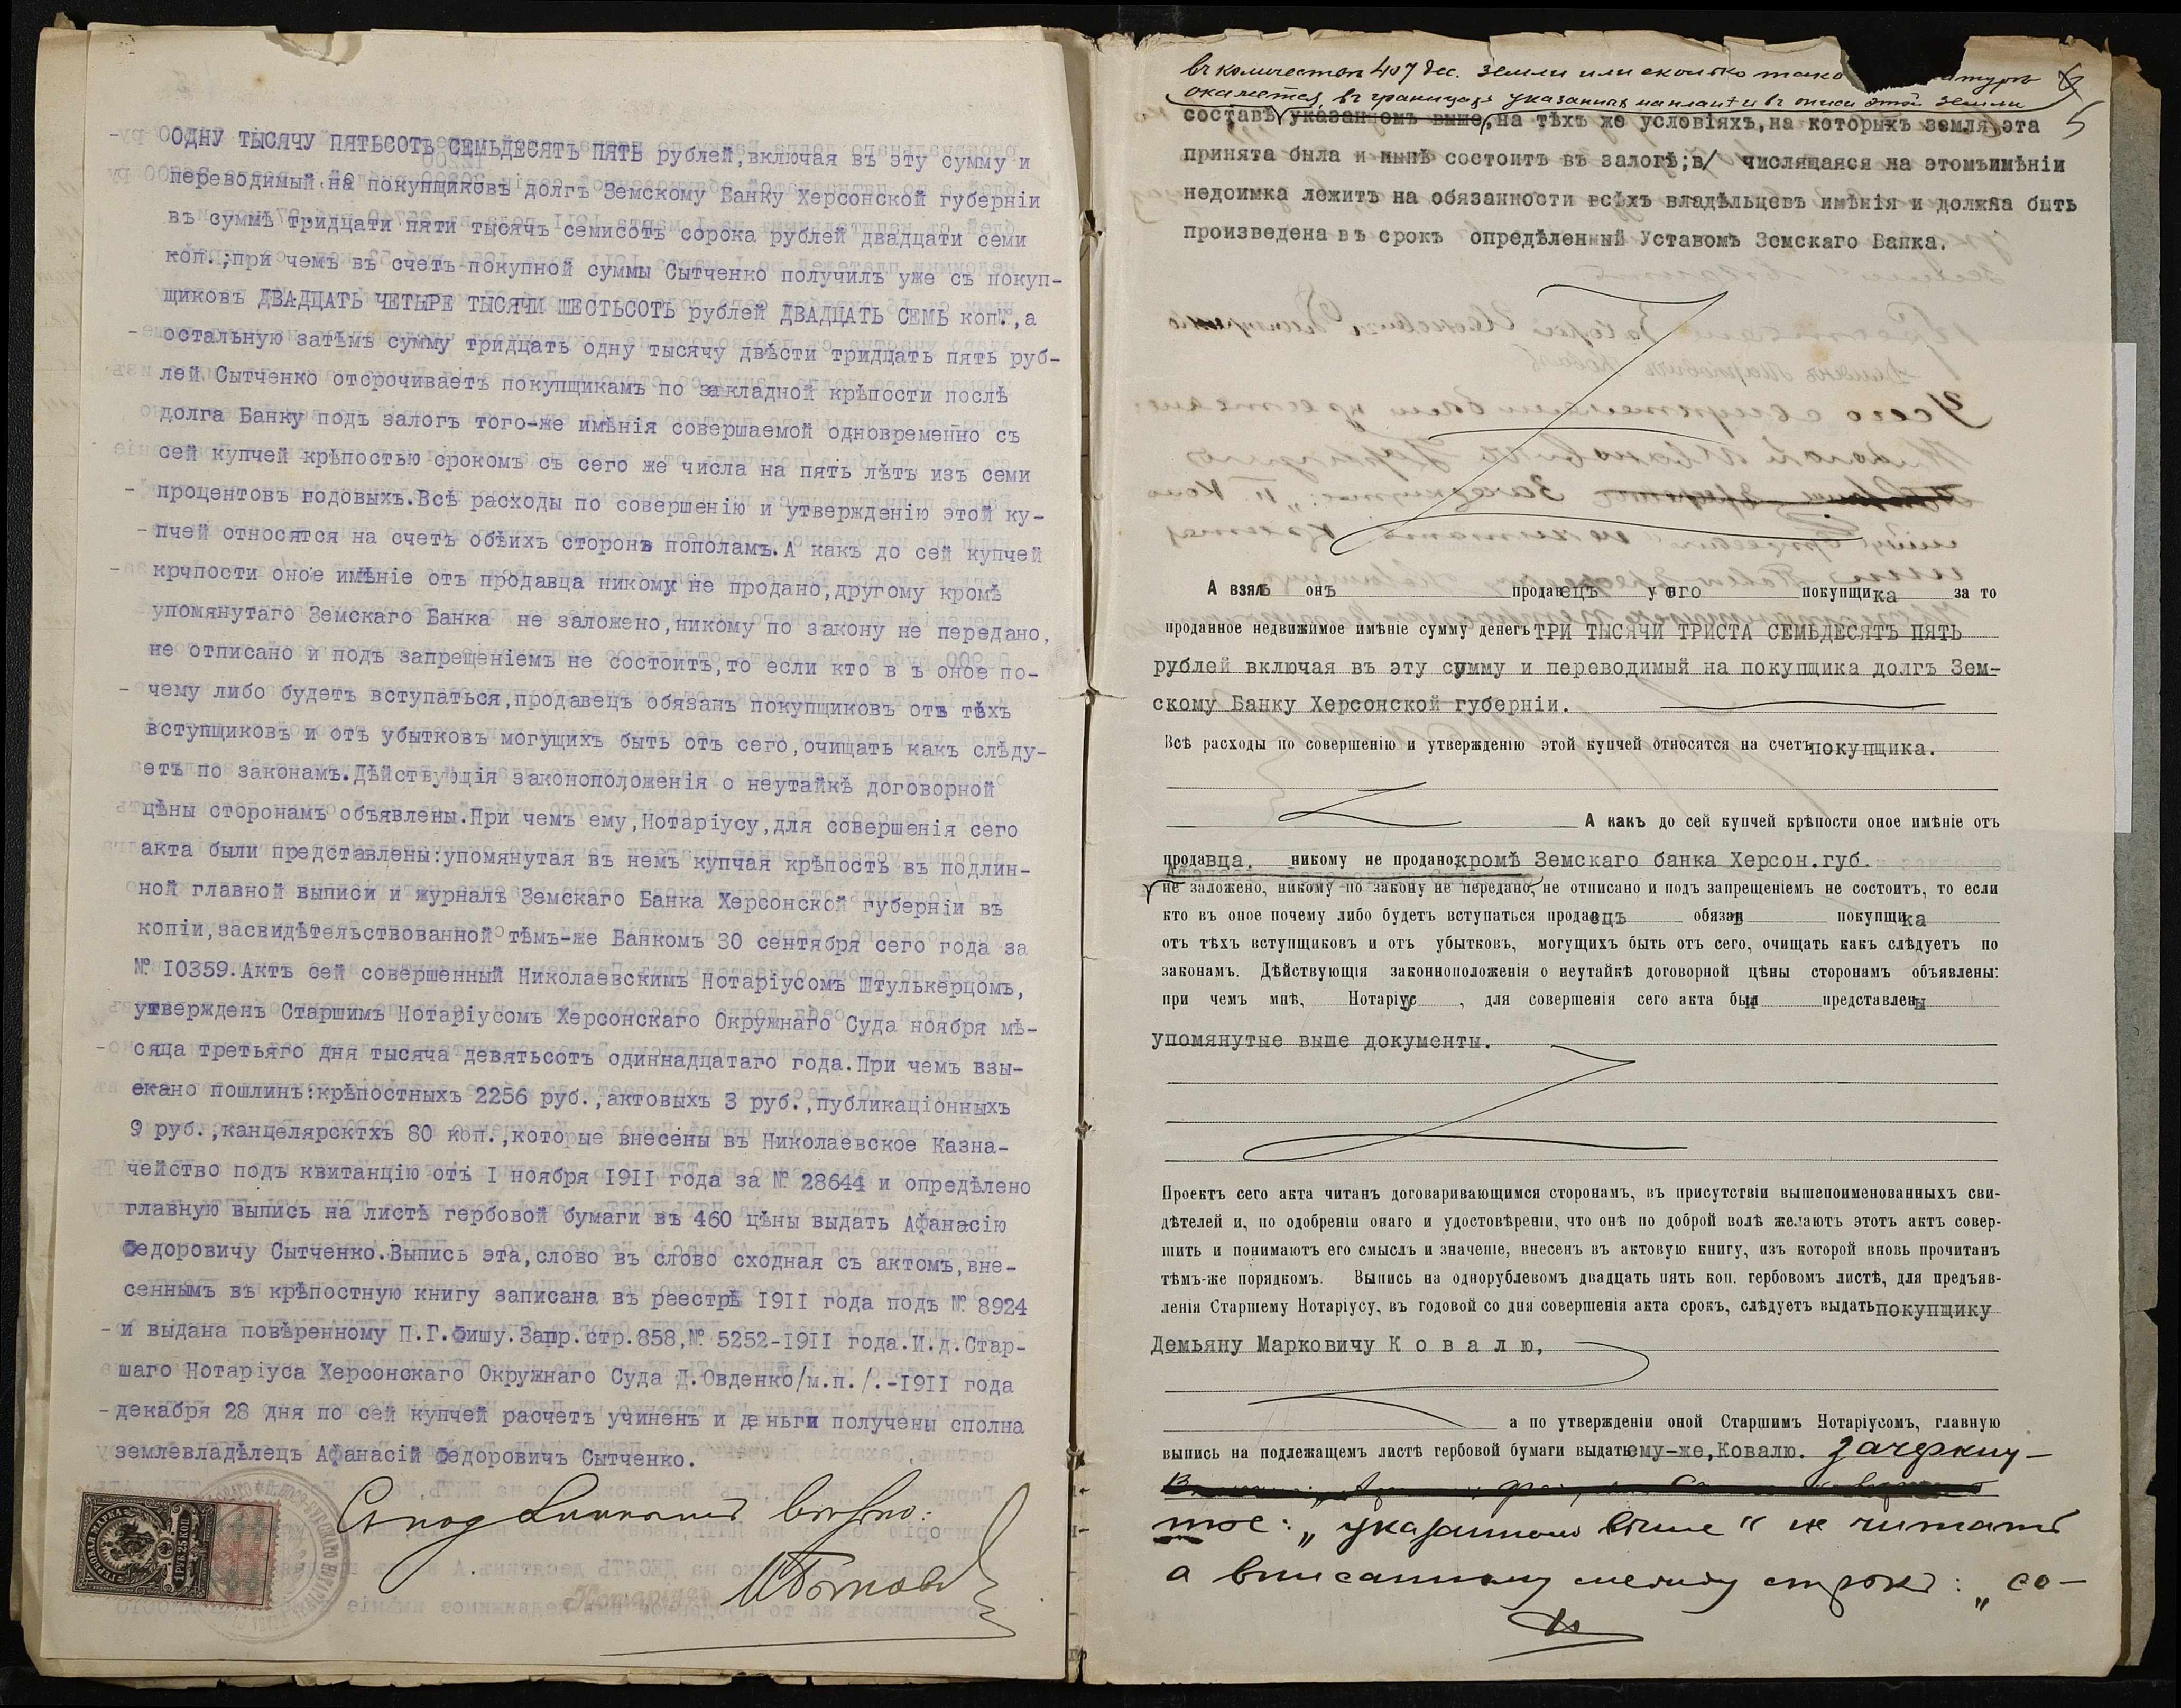 ОДНУ ТЫСЯЧУ ПЯТЬСОТЪ СЕМЬДЕСЯТЪ ПЯТЬ рублей,включая въ эту сумму и
переводимый на покупщиковъ долгъ Земскому Банку Херсонской губерніи
въ суммѣ тридцати пяти тысячъ семисотъ сорока рублей двадцати семи
коп.,при чемъ въ счетъ покупной суммы Сытченко получилъ уже съ покуп-
щиковъ ДВАДЦАТЬ ЧЕТЫРЕ ТЫСЯЧИ ШЕСТЬСОТЪ рублей ДВАДЦАТЬ СЕМЬ коп.,а
- остальную затѣмъ сумму тридцать одну тысячу двѣсти тридцать пять руб-
лей Сытченко отсрочиваетъ покупщикамъ по закладной крѣпости послѣ
долга Банку подъ залогъ того-же имѣнія совершаемой одновременно съ
сей купчей крѣпостью срокомъ съ сего же числа на пять лѣтъ изъ семи
- процентовъ годовыхъ.Всѣ расходы по совершенію и утвержденію этой ку-
- пчей относятся на счетъ обѣихъ сторонъ пополамъ.А какъ до сей купчей
- крчпости оное имѣніе отъ продавца никому не продано,другому кромѣ
упомянутаго Земскаго Банка не заложено,никому по закону не передано,
не отписано и подъ запрещеніемъ не состоитъ,то если кто в ъ оное по-
- чему либо будетъ вступаться,продавецъ обязанъ покупщиковъ отъ тѣхъ
вступщиковъ и отъ убытковъ могущихъ быть отъ сего,очищать какъ слѣду-
етъ по законамъ.Дѣйствующія законоположенія о неутайкѣ договорной
цѣны сторонамъ объявлены.При чемъ ему,Нотаріусу,для совершенія сего
акта были представлены:упомянутая въ немъ купчая крѣпость въ подлин-
ной главной выписи и журналъ Земскаго Банка Херсонской губерніи въ
копіи,засвидѣтельствованной тѣмъ-же Банкомъ 30 сентября сего года за
№ 10359.Актъ сей совершенный Николаевскимъ Нотаріусомъ Штулькерцомъ,
утвержденъ Старшимъ Нотаріусомъ Херсонскаго Окружнаго Суда ноября мѣ-
- сяца третьяго дня тысяча девятьсотъ одиннадцатаго года.При чемъ взы-
екано пошлинъ:крѣпостныхъ 2256 руб.,актовыхъ 3 руб.,публикаціонныхъ
9 руб.,канцелярсктхъ 80 коп.,которые внесены въ Николаевское Казна-
чейство подъ квитанцію отъ I ноября 1911 года за № 28644 и опредѣлено
главную выпись на листѣ гербовой бумаги въ 460 цѣны выдать Афанасію
Федоровичу Сытченко.Выпись эта,слово въ слово сходная съ актомъ,вне-
сеннымъ въ крѣпостную книгу записана въ реестрѣ 1911 года подъ № 8924
- и выдана повѣренному П.Г.Фишу.Запр.стр.858,№ 5252-1911 года.И.д.Стар-
шаго Нотаріуса Херсонскаго Окружнаго Суда Д.Овденко/м.п./.-1911 года
- декабря 28 дня по сей купчей расчетъ учиненъ и деньги получены сполна
землевладѣлецъ Афанасій Федоровичъ Сытченко.
ГЕРБОВАЯ МАРКА
1 РУБ 25 КОП.
Съ подлиннымъ вѣрно:
Нотаріусъ
въ количествѣ 407 дес. земли или сколько
окажется, въ границахъ указанныхъ на планѣ и въ описи этой земли
5
составѣ указанномъ выше,на тѣхъ же условіяхъ,на которыхъ земля эта
принята была и нынѣ состоитъ въ залогѣ;в/ числящаяся на этомъимѣніи
недоимка лежитъ на обязанности всѣхъ владѣльцевъ имѣнія и должна быть
произведена въ срокъ опредѣленный Уставомъ Земскаго Банка.
А взялъ онъ продавецъ у него покупщика за то
проданное недвижимое имѣніе сумму денегъ ТРИ ТЫСЯЧИ ТРИСТА СЕМЬДЕСЯТЪ ПЯТЬ
рублей включая въ эту сумму и переводимый на покупщика долгъ Зем-
скому Банку Херсонской губерніи.
Всѣ расходы по совершенію и утвержденію этой купчей относятся на счетъ покупщика.
А какъ до сей купчей крѣпости оное имѣніе отъ
продавца. никому не продано,кромѣ Земскаго банка Херсон.губ.
не заложено, никому по закону не передано, не отписано и подъ запрещеніемъ не состоитъ, то если
кто въ оное почему либо будетъ вступаться продавецъ обязан покупщика
отъ тѣхъ вступщиковъ и отъ убытковъ, могущихъ быть отъ сего, очищать какъ слѣдуетъ по
законамъ. Дѣйствующія законноположенія о неутайкѣ договорной цѣны сторонамъ объявлены:
при чемъ мнѣ, Нотаріус , для совершенія сего акта были представлены
упомянутые выше документы.
Проектъ сего акта читанъ договаривающимся сторонамъ, въ присутствіи вышепоименованныхъ сви-
дѣтелей и, по одобреніи онаго и удостовѣреніи, что онѣ по доброй волѣ желаютъ этотъ актъ совер-
шить и понимаютъ его смыслъ и значеніе, внесенъ въ актовую книгу, изъ которой вновь прочитанъ
тѣмъ-же порядкомъ. Выпись на однорублевомъ двадцать пять коп. гербовомъ листѣ, для предъяв-
ленія Старшему Нотаріусу, въ годовой со дня совершенія акта срокъ, слѣдуетъ выдать покупщику
Демьяну Марковичу К о в а л ю,
а по утвержденіи оной Старшимъ Нотаріусомъ, главную
выпись на подлежащемъ листѣ гербовой бумаги выдать ему-же,Ковалю. Зачеркну-
тое: „указанномъ выше" не читать
а вписанному между строкъ: „со-